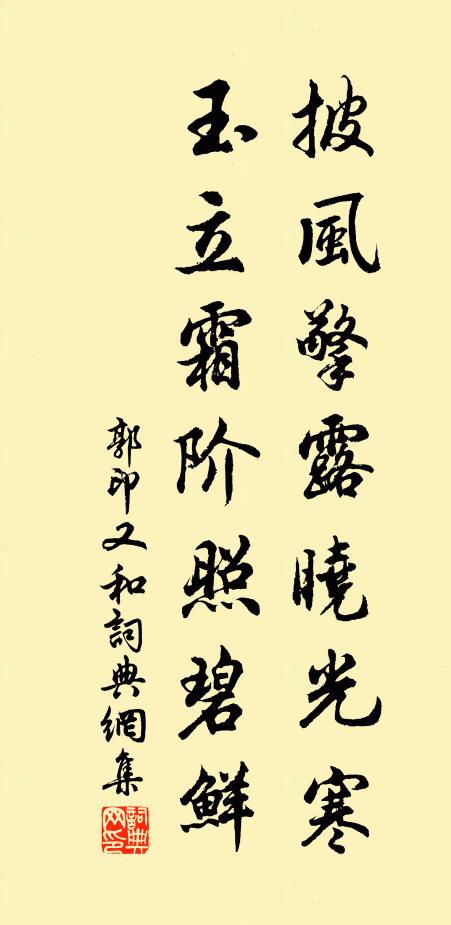 披風擎露曉光寒
玉立霜阶照碧鮮
郭印又和詞典網集
詞典网印